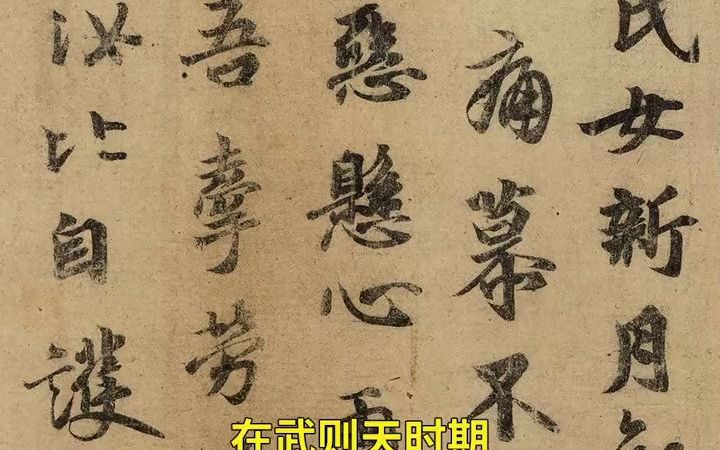 氏女新月
痛慕不
惡懸心
吾牽勞
汝比自護
在武则天时期